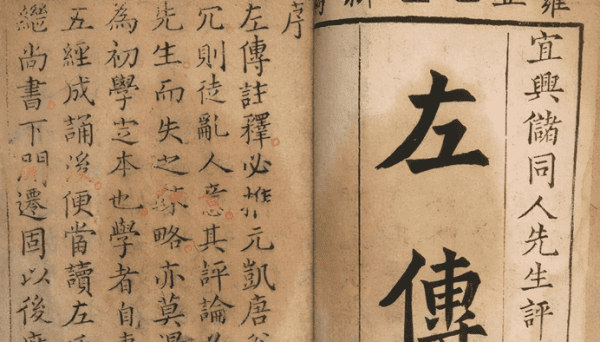 宜興儲同人先生評
左傳
序
左傳註釋必推元凱唐
冗則徒亂人意其評論
先生而失之略亦莫
為初學本也學者自
五經成誦後便當讀左
繼尚書下開遷固以後